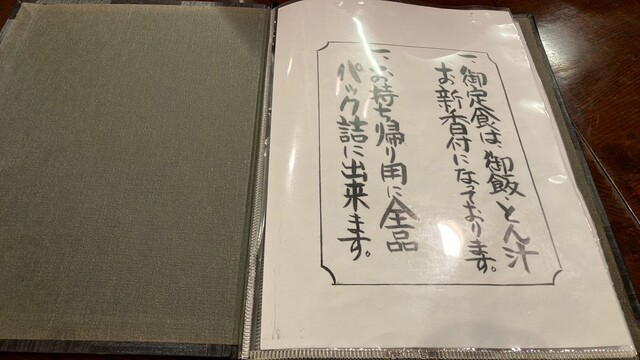 一、御定食は、御飯・とん汁
お新香付になっております。
一、お持ち帰り用に全品
パック詰に出来ます。